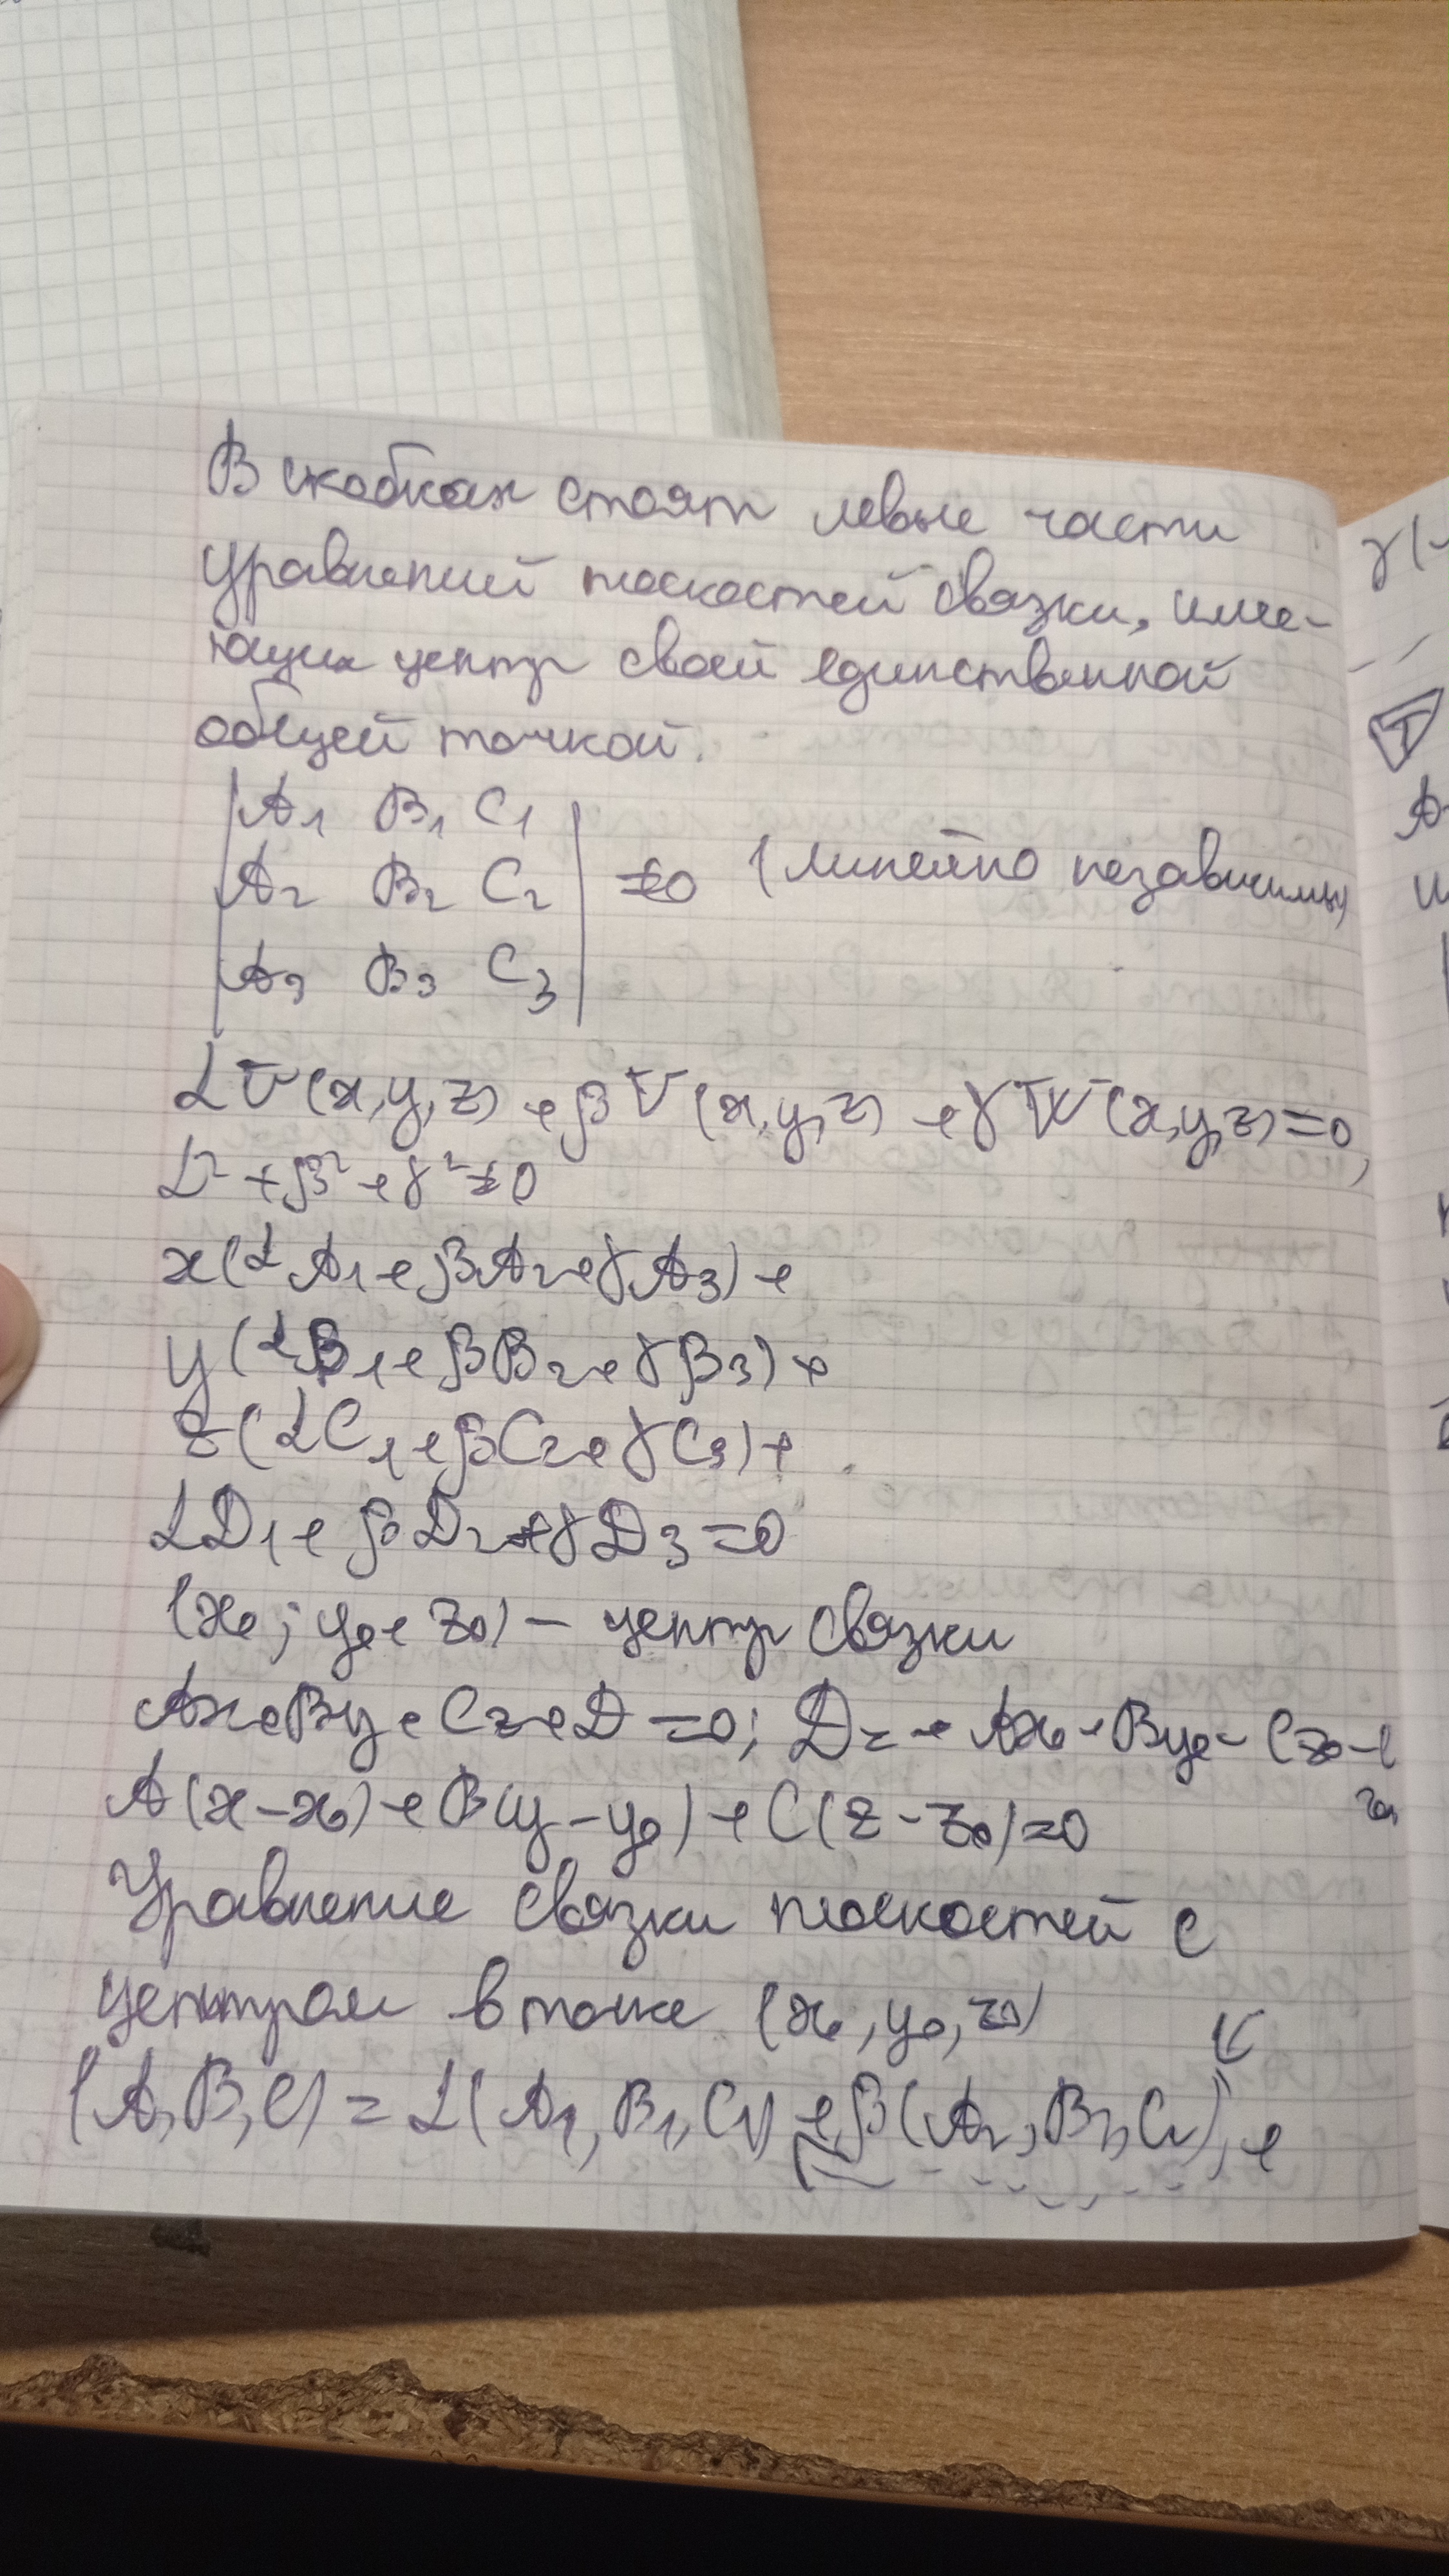 В скобках стоят левые части
уравнений плоскостей связки, име-
ющих центр своей единственной
общей точкой.
|A₁ B₁ C₁|
|A₂ B₂ C₂| ≠0 (линейно независимы)
|A₃ B₃ C₃|
αU(x,y,z) + βV(x,y,z) + γW(x,y,z)=0,
α² + β² + γ² ≠0
x(αA₁+βA₂+γA₃)+
y(αB₁+βB₂+γB₃)+
z(αC₁+βC₂+γC₃)+
αD₁+βD₂+γD₃=0
(x₀; y₀, z₀) – центр связки
Ax+By+Cz+D=0; D= - Ax₀-By₀-Cz₀
A(x-x₀)+B(y-y₀)+C(z-z₀)=0
Уравнение связки плоскостей с
центром в точке (x₀, y₀, z₀)
(A,B,C) = α(A₁, B₁, C₁) + β(A₂, B₂, C₂) +
γ(
T